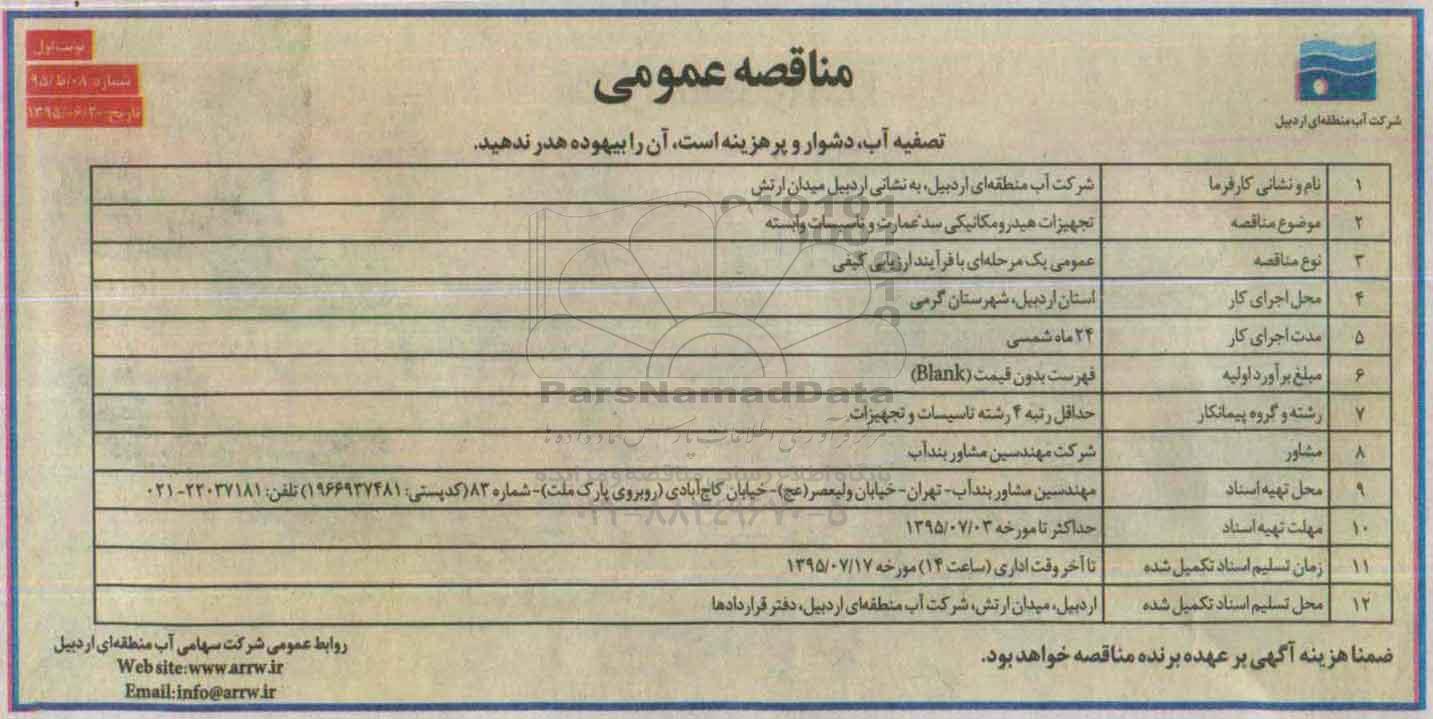 نوبت اول
شماره: ۰۸/ط/۹۵
تاریخ: ۱۳۹۵/۰۶/۲۰
مناقصه عمومی
شرکت آب منطقه‌ای اردبیل
تصفیه آب، دشوار و پرهزینه است، آن را بیهوده هدر ندهید.
۱ نام و نشانی کارفرما شرکت آب منطقه‌ای اردبیل، به نشانی اردبیل میدان ارتش
۲ موضوع مناقصه تجهیزات هیدرومکانیکی سد عمارت و تاسیسات وابسته
۳ نوع مناقصه عمومی یک مرحله‌ای با فرآیند ارزیابی کیفی
۴ محل اجرای کار استان اردبیل، شهرستان گرمی
۵ مدت اجرای کار ۲۴ ماه شمسی
۶ مبلغ برآورد اولیه فهرست بدون قیمت (Blank)
۷ رشته و گروه پیمانکار حداقل رتبه ۴ رشته تاسیسات و تجهیزات
۸ مشاور شرکت مهندسین مشاور بندآب
۹ محل تهیه اسناد مهندسین مشاور بندآب- تهران- خیابان ولیعصر(عج)- خیابان کاج‌آبادی (روبروی پارک ملت)- شماره ۸۳(کدپستی: ۱۹۶۶۹۳۷۴۸۱) تلفن: ۲۲۰۳۷۱۸۱-۰۲۱
۱۰ مهلت تهیه اسناد حداکثر تا مورخه ۱۳۹۵/۰۷/۰۳
۱۱ زمان تسلیم اسناد تکمیل شده تا آخر وقت اداری (ساعت ۱۴) مورخه ۱۳۹۵/۰۷/۱۷
۱۲ محل تسلیم اسناد تکمیل شده اردبیل، میدان ارتش، شرکت آب منطقه‌ای اردبیل، دفتر قراردادها
ParsNamadData
مرکز فرآوری اطلاعات پارس نماد داده‌ها
۰۲۱-۸۸۳۴۹۶۷۰-۵
ضمنا هزینه آگهی بر عهده برنده مناقصه خواهد بود.
روابط عمومی شرکت سهامی آب منطقه‌ای اردبیل
Web site:www.arrw.ir
Email:info@arrw.ir